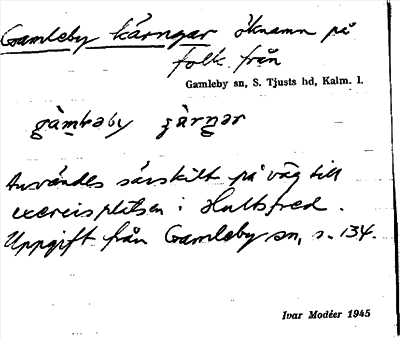 Gamleby käringar öknamn på
Folk från
Gamleby sn, S. Tjusts hd, Kalm. l.
Användes särskilt på väg till
exercisplatsen i Hultsfred.
Uppgift från Gamleby sn, s. 134.
Ivar Modéer 1945